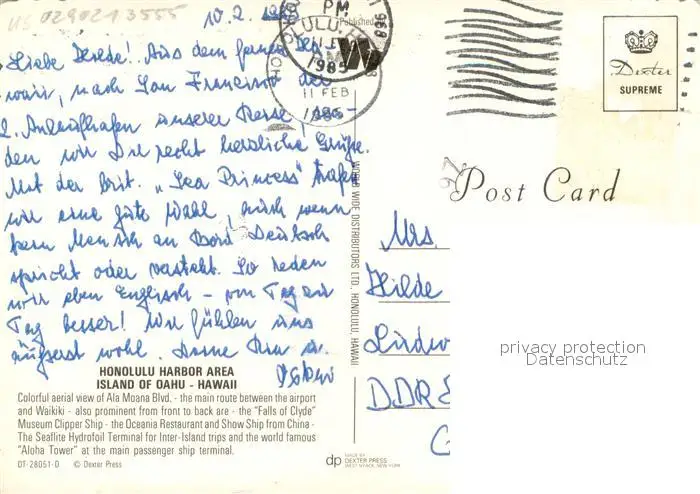 US 0290213555
10.2.
Published
PM
HONOLULU, HI
11 FEB
1985
HONOLULU
968
11 FEB
1985
Dexter
SUPREME
Liebe Hilde! Aus dem fernen Ha-
waii, nach San Francisco der
2. Anlaufhafen unserer Reise, sen-
den wir Dir recht herzliche Grüße.
Mit der brit. "Sea Princess" trafen
wir eine gute Wahl, auch wenn
kein Mensch an Bord Deutsch
spricht oder versteht. So reden
wir eben Englisch - von Tag zu
Tag besser! Wir fühlen uns
äußerst wohl. Deine
Post Card
97
WORLD WIDE DISTRIBUTORS LTD., HONOLULU, HAWAII
Mrs.
Hilde
Ludw
DDR
privacy protection
Datenschutz
HONOLULU HARBOR AREA
ISLAND OF OAHU - HAWAII
Colorful aerial view of Ala Moana Blvd. - the main route between the airport
and Waikiki - also prominent from front to back are - the "Falls of Clyde"
Museum Clipper Ship - the Oceania Restaurant and Show Ship from China -
The Seaflite Hydrofoil Terminal for Inter-Island trips and the world famous
"Aloha Tower" at the main passenger ship terminal.
DT-28051-D © Dexter Press
dp MADE BY
DEXTER PRESS
WEST NYACK, NEW YORK